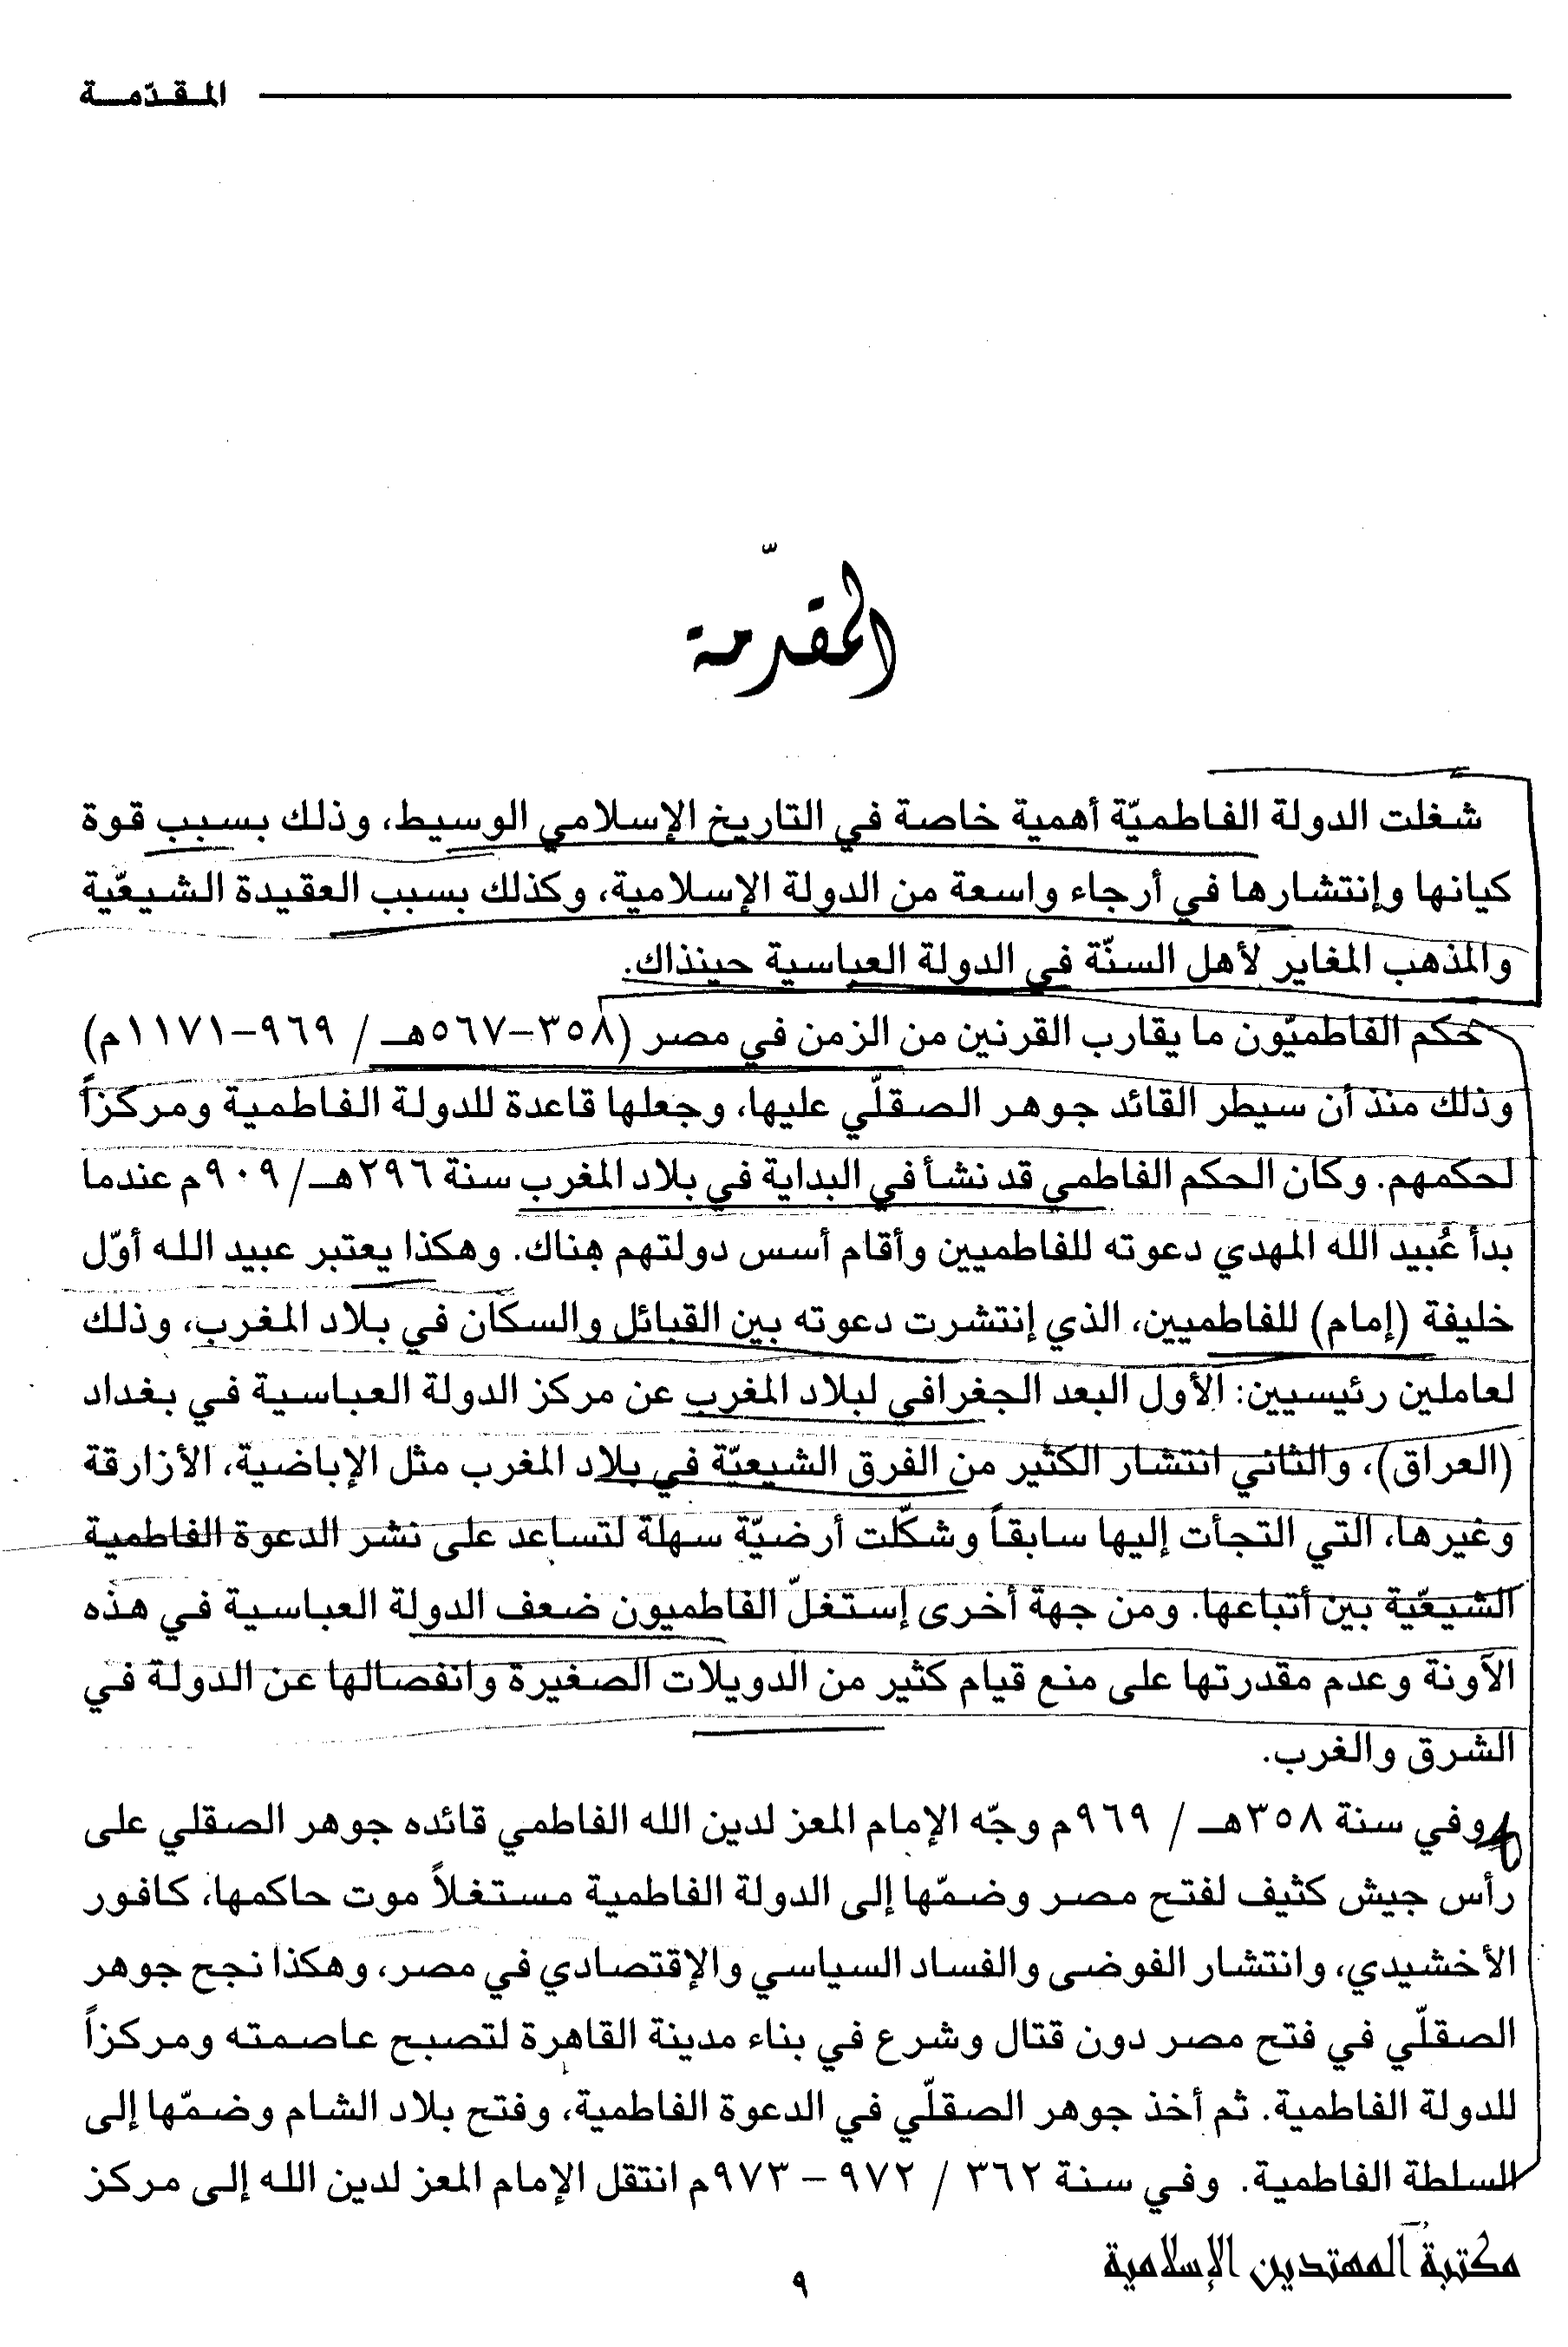 المقدّمة
المقدّمة
شغلت الدولة الفاطميّة أهمية خاصة في التاريخ الإسلامي الوسيط، وذلك بسبب قوة
كيانها وإنتشارها في أرجاء واسعة من الدولة الإسلامية، وكذلك بسبب العقيدة الشيعّية
والمذهب المغاير لأهل السنّة في الدولة العباسية حينذاك.
حكم الفاطميّون ما يقارب القرنين من الزمن في مصر (٣٥٨-٥٦٧هـ / ٩٦٩-١١٧١م)
وذلك منذ أن سيطر القائد جوهر الصقلّي عليها، وجعلها قاعدة للدولة الفاطمية ومركزاً
لحكمهم. وكان الحكم الفاطمي قد نشأ في البداية في بلاد المغرب سنة ٢٩٦هـ/ ٩٠٩م عندما
بدأ عُبيد الله المهدي دعوته للفاطميين وأقام أسس دولتهم هناك. وهكذا يعتبر عبيد الله أوّل
خليفة (إمام) للفاطميين، الذي إنتشرت دعوته بين القبائل والسكان في بلاد المغرب، وذلك
لعاملين رئيسيين: الأول البعد الجغرافي لبلاد المغرب عن مركز الدولة العباسية في بغداد
(العراق)، والثاني انتشار الكثير من الفرق الشيعيّة في بلاد المغرب مثل الإباضية، الأزارقة
وغيرها، التي التجأت إليها سابقاً وشكّلت أرضيّة سهلة لتساعد على نشر الدعوة الفاطمية
الشيعّية بين أتباعها. ومن جهة أخرى إستغلّ الفاطميون ضعف الدولة العباسية في هذه
الآونة وعدم مقدرتها على منع قيام كثير من الدويلات الصغيرة وانفصالها عن الدولة في
الشرق والغرب.
وفي سنة ٣٥٨هـ / ٩٦٩م وجّه الإمام المعز لدين الله الفاطمي قائده جوهر الصقلي على
رأس جيش كثيف لفتح مصر وضمّها إلى الدولة الفاطمية مستغلاً موت حاكمها، كافور
الأخشيدي، وانتشار الفوضى والفساد السياسي والإقتصادي في مصر، وهكذا نجح جوهر
الصقلّي في فتح مصر دون قتال وشرع في بناء مدينة القاهرة لتصبح عاصمته ومركزاً
للدولة الفاطمية. ثم أخذ جوهر الصقلّي في الدعوة الفاطمية، وفتح بلاد الشام وضمّها إلى
السلطة الفاطمية. وفي سنة ٣٦٢ / ٩٧٢ – ٩٧٣م انتقل الإمام المعز لدين الله إلى مركز
مكتبة المهتدين الإسلامية
٩